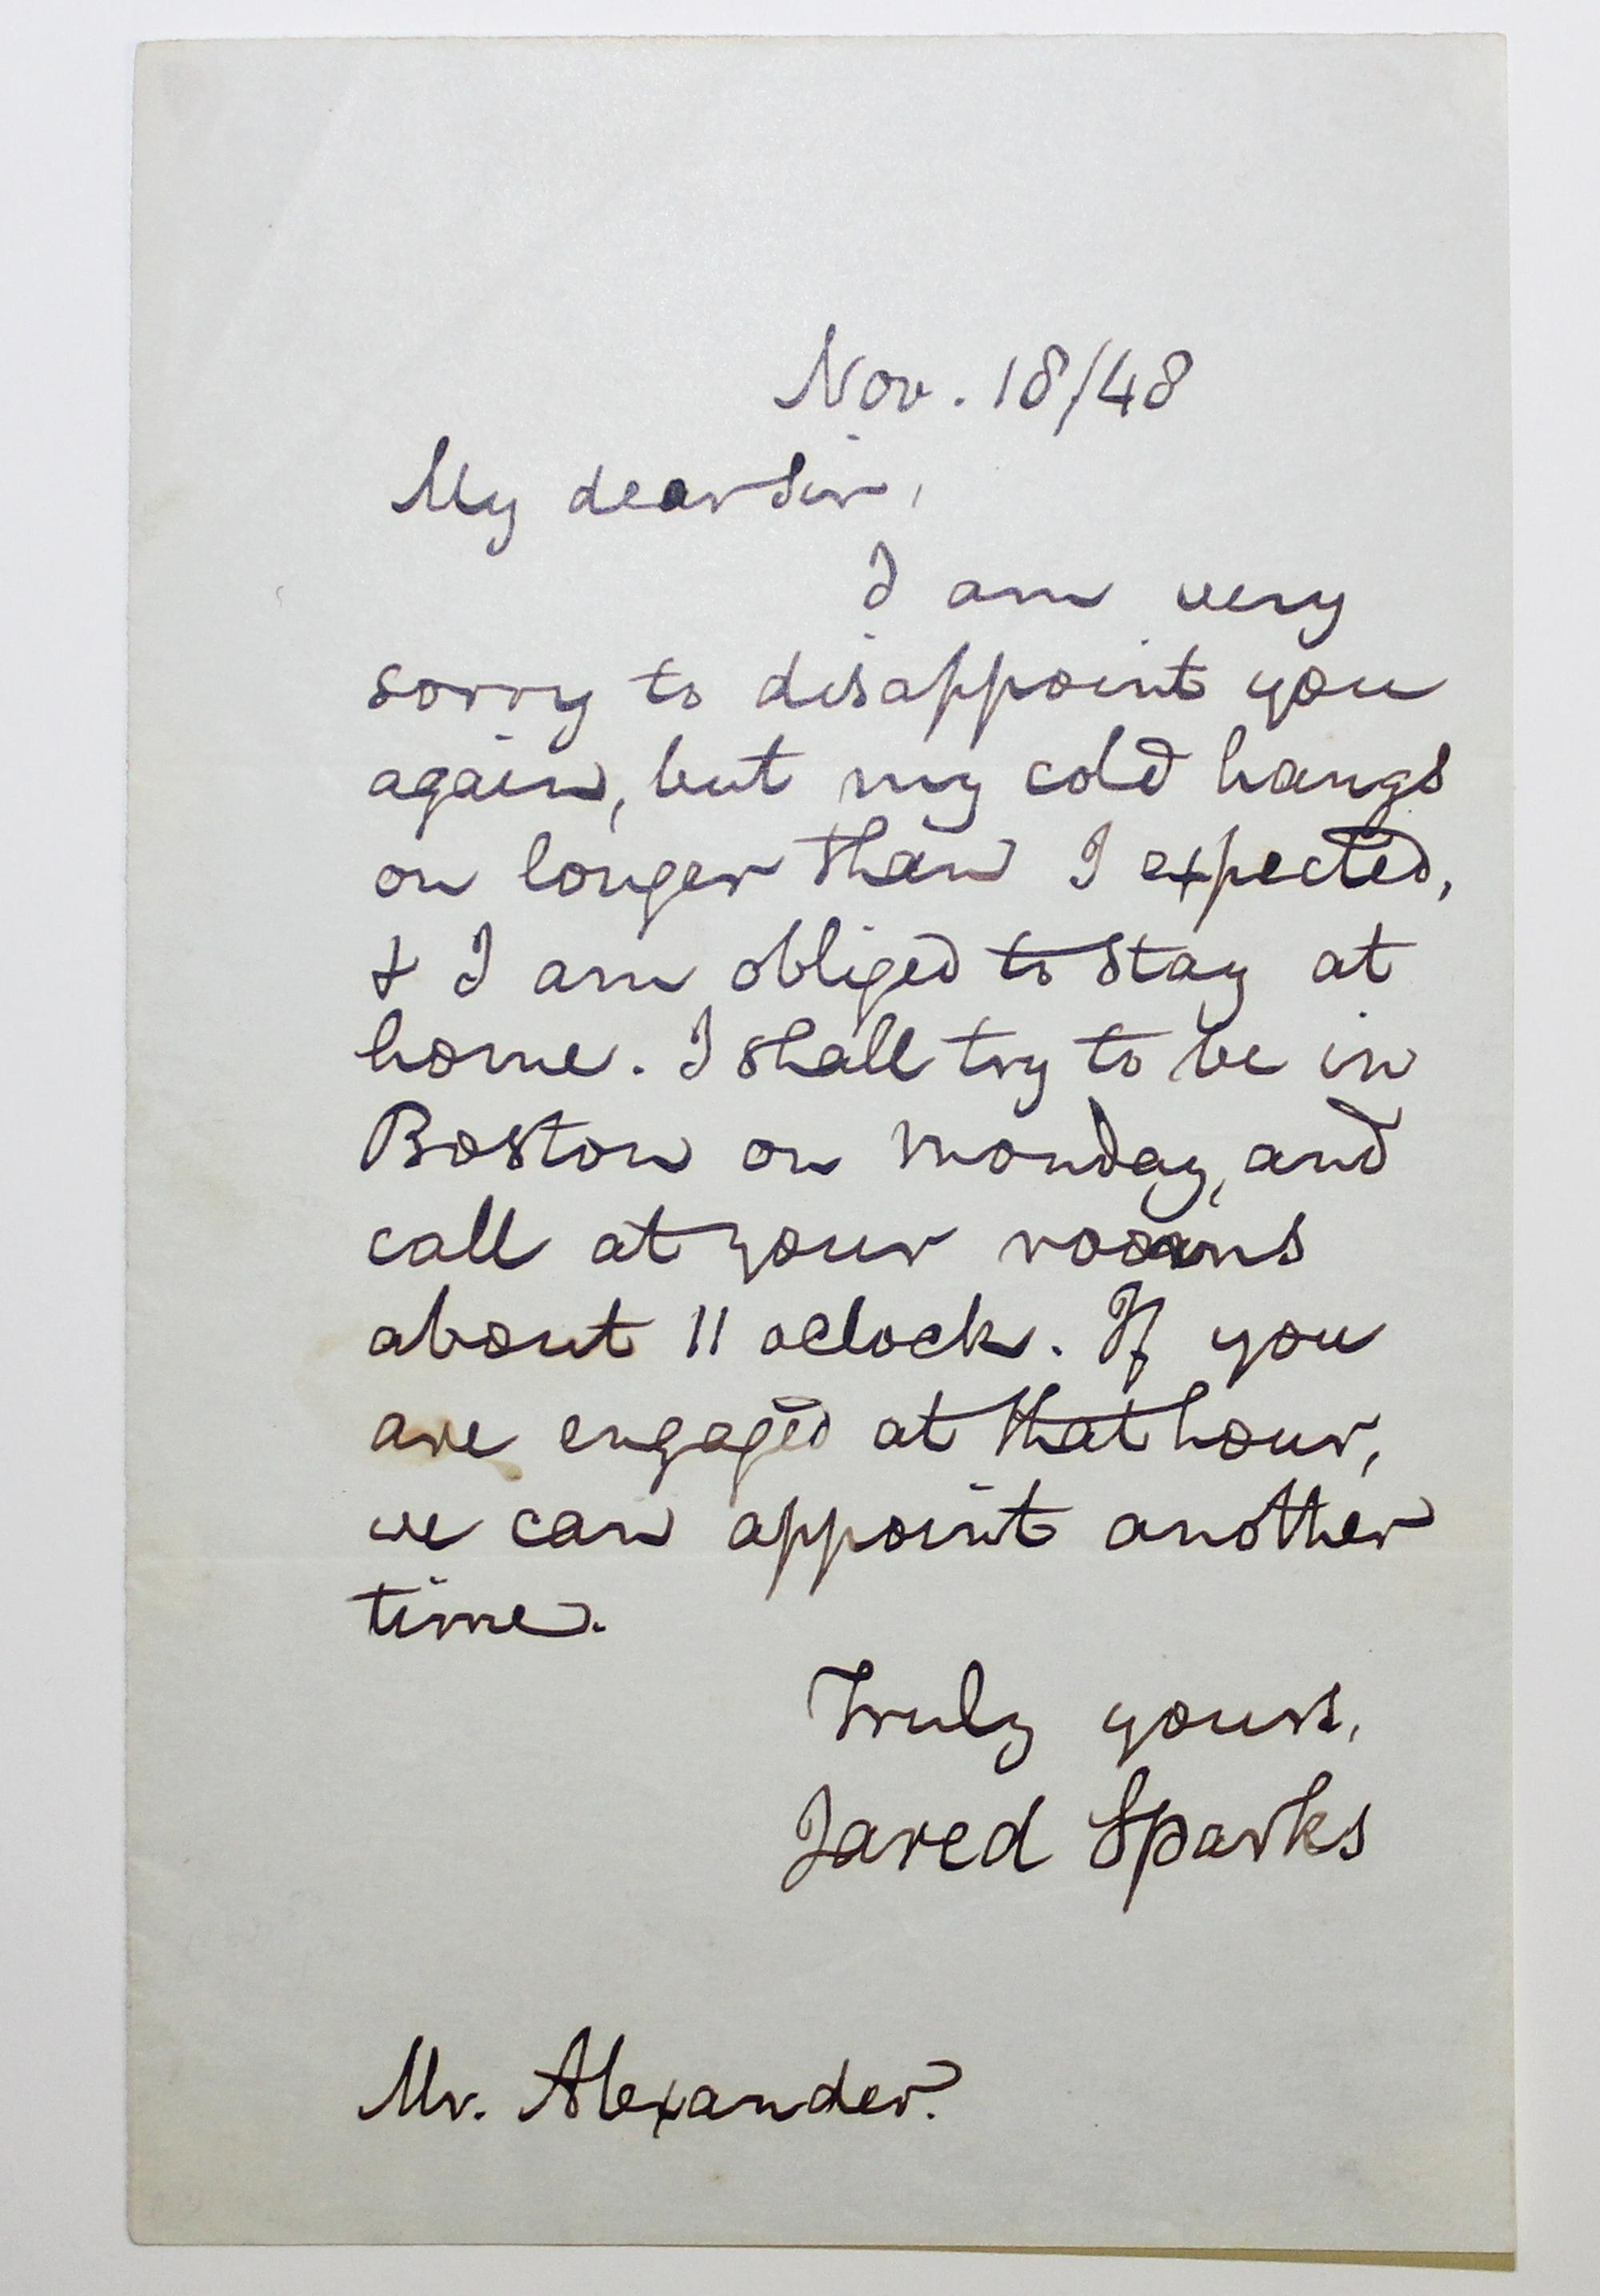 Nov. 18/48
My dear Sir,
I am very
sorry to disappoint you
again, but my cold hangs
on longer than I expected,
& I am obliged to stay at
home. I shall try to be in
Boston on monday, and
call at your rooms
about 11 oclock. If you
are engaged at that hour,
we can appoint another
time.
Truly yours,
Jared Sparks
Mr. Alexander.